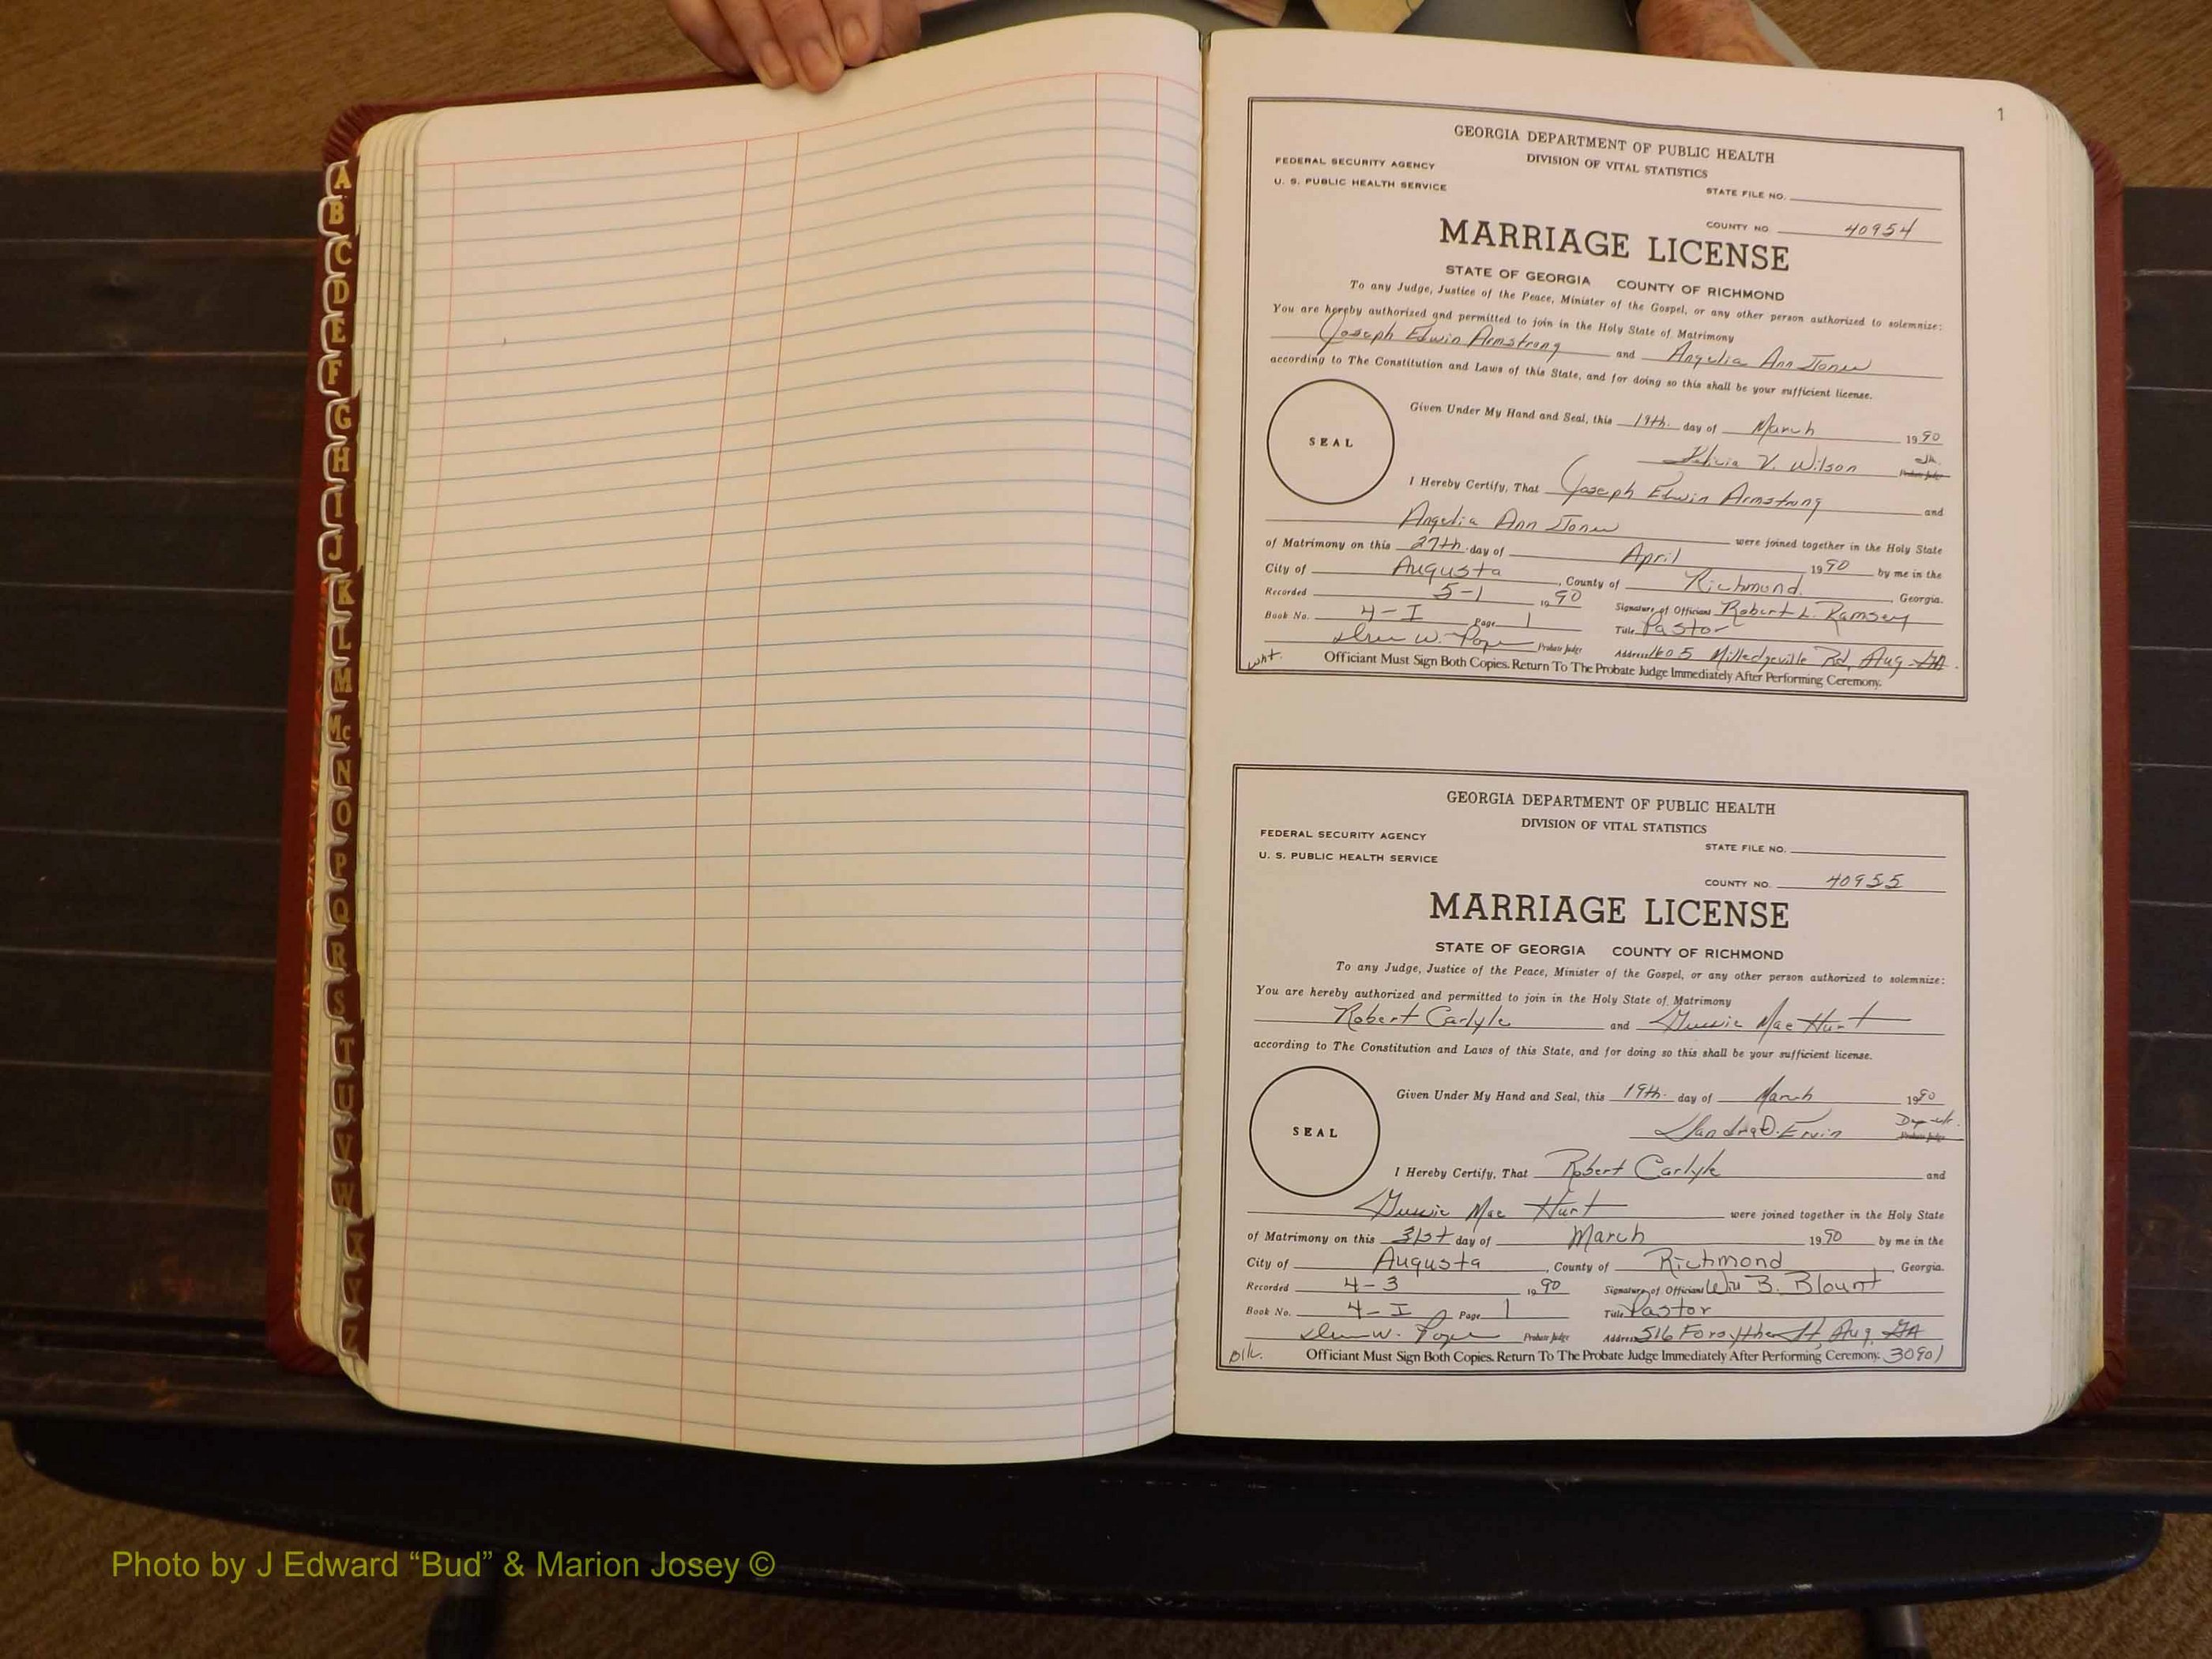 A
B
C
D
E
F
G
H
I
J
K
L
M
Mc
N
O
P
Q
R
S
T
U
V
W
X
Y
Z
1
GEORGIA DEPARTMENT OF PUBLIC HEALTH
DIVISION OF VITAL STATISTICS
FEDERAL SECURITY AGENCY
U. S. PUBLIC HEALTH SERVICE
STATE FILE NO.
COUNTY NO. 40954
MARRIAGE LICENSE
STATE OF GEORGIA COUNTY OF RICHMOND
To any Judge, Justice of the Peace, Minister of the Gospel, or any other person authorized to solemnize:
You are hereby authorized and permitted to join in the Holy State of Matrimony
Joseph Edwin Armstrong and Angelia Ann Jones
according to The Constitution and Laws of this State, and for doing so this shall be your sufficient license.
Given Under My Hand and Seal, this 19th. day of March 1990
SEAL
V. Wilson
Probate Judge
I Hereby Certify, That Joseph Edwin Armstrong and
Angelia Ann Jones were joined together in the Holy State
of Matrimony on this 27th. day of April 1990 by me in the
City of Augusta, County of Richmond, Georgia.
Recorded 5-1 1990 Signature of Officiant Robert L. Ramsey
Book No. 4-I Page 1 Title Pastor
W. Pope Probate Judge Address 1605 Milledgeville Rd, Aug GA.
wht. Officiant Must Sign Both Copies. Return To The Probate Judge Immediately After Performing Ceremony.
GEORGIA DEPARTMENT OF PUBLIC HEALTH
DIVISION OF VITAL STATISTICS
FEDERAL SECURITY AGENCY
U. S. PUBLIC HEALTH SERVICE
STATE FILE NO.
COUNTY NO. 40955
MARRIAGE LICENSE
STATE OF GEORGIA COUNTY OF RICHMOND
To any Judge, Justice of the Peace, Minister of the Gospel, or any other person authorized to solemnize:
You are hereby authorized and permitted to join in the Holy State of Matrimony
Robert Carlyle and Gussie Mae Hurt
according to The Constitution and Laws of this State, and for doing so this shall be your sufficient license.
Given Under My Hand and Seal, this 19th. day of March 1990
SEAL
Sandra D. Ervin
Probate Judge
I Hereby Certify, That Robert Carlyle and
Gussie Mae Hurt were joined together in the Holy State
of Matrimony on this 31st day of March 1990 by me in the
City of Augusta, County of Richmond, Georgia.
Recorded 4-3 1990 Signature of Officiant Wm B. Blount
Book No. 4-I Page 1 Title Pastor
W. Pope Probate Judge Address 516 Aug, GA
Blk. Officiant Must Sign Both Copies. Return To The Probate Judge Immediately After Performing Ceremony. 30901
Photo by J Edward “Bud” & Marion Josey ©